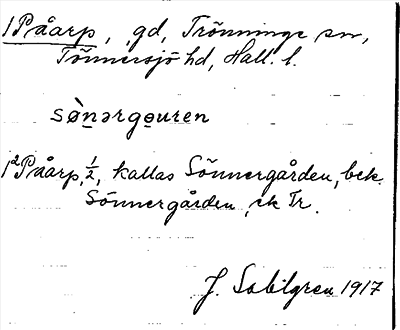 1 Påarp, gd, Trönninge sn,
Tönnersjö hd, Hall. l.
sö̀nərgɷuren
1 ²Påarp, ½, kallas Sönnergården, bek.
Sönnergården, ek Tr.
J. Sahlgren 1917